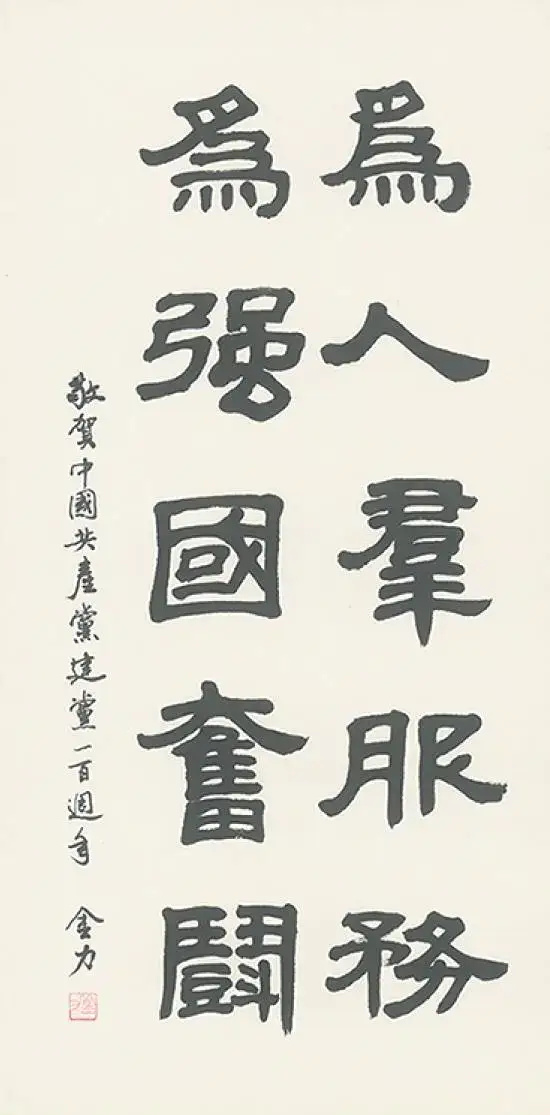 爲人羣服務
爲强國奮鬭
敬賀中國共產黨建黨一百週年 金力